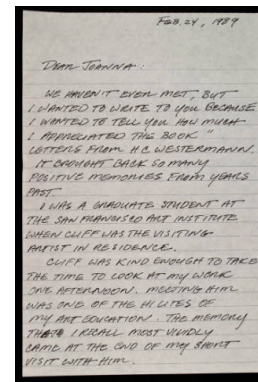 FEB. 24, 1989
DEAR JOANNA:
WE HAVEN'T EVEN MET, BUT
I WANTED TO WRITE TO YOU BECAUSE
I WANTED TO TELL YOU HOW MUCH
I APPRECIATED THE BOOK "
LETTERS FROM H.C. WESTERMANN.
IT BROUGHT BACK SO MANY
POSITIVE MEMORIES FROM YEARS
PAST.
I WAS A GRADUATE STUDENT AT
THE SAN FRANCISCO ART INSTITUTE
WHEN CLIFF WAS THE VISITING
ARTIST IN RESIDENCE.
CLIFF WAS KIND ENOUGH TO TAKE
THE TIME TO LOOK AT MY WORK
ONE AFTERNOON. MEETING HIM
WAS ONE OF THE HILITES OF
MY ART EDUCATION. THE MEMORY
THAT I RECALL MOST VIVIDLY
CAME AT THE END OF MY SHORT
VISIT WITH HIM.